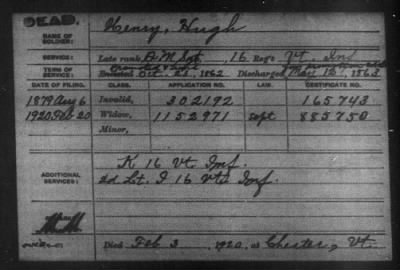 DEAD.
NAME OF SOLDIER:
Henry, Hugh
SERVICE:
Late rank, Q.M. Sgt, 16 Reg't Vt. Inf
TERM OF SERVICE:
Enlisted Oct. 21, 1862 Discharged May 12, 1863
DATE OF FILING. CLASS. APPLICATION NO. LAW. CERTIFICATE NO.
1879 Aug 6 Invalid, 302192 165743
1920 Feb 20 Widow, 1152971 Sept 885750
Minor,
ADDITIONAL SERVICES:
K 16 Vt Inf.
2d Lt. I 16 Vt. Inf.
Died Feb 3, 1920, at Chester, Vt.